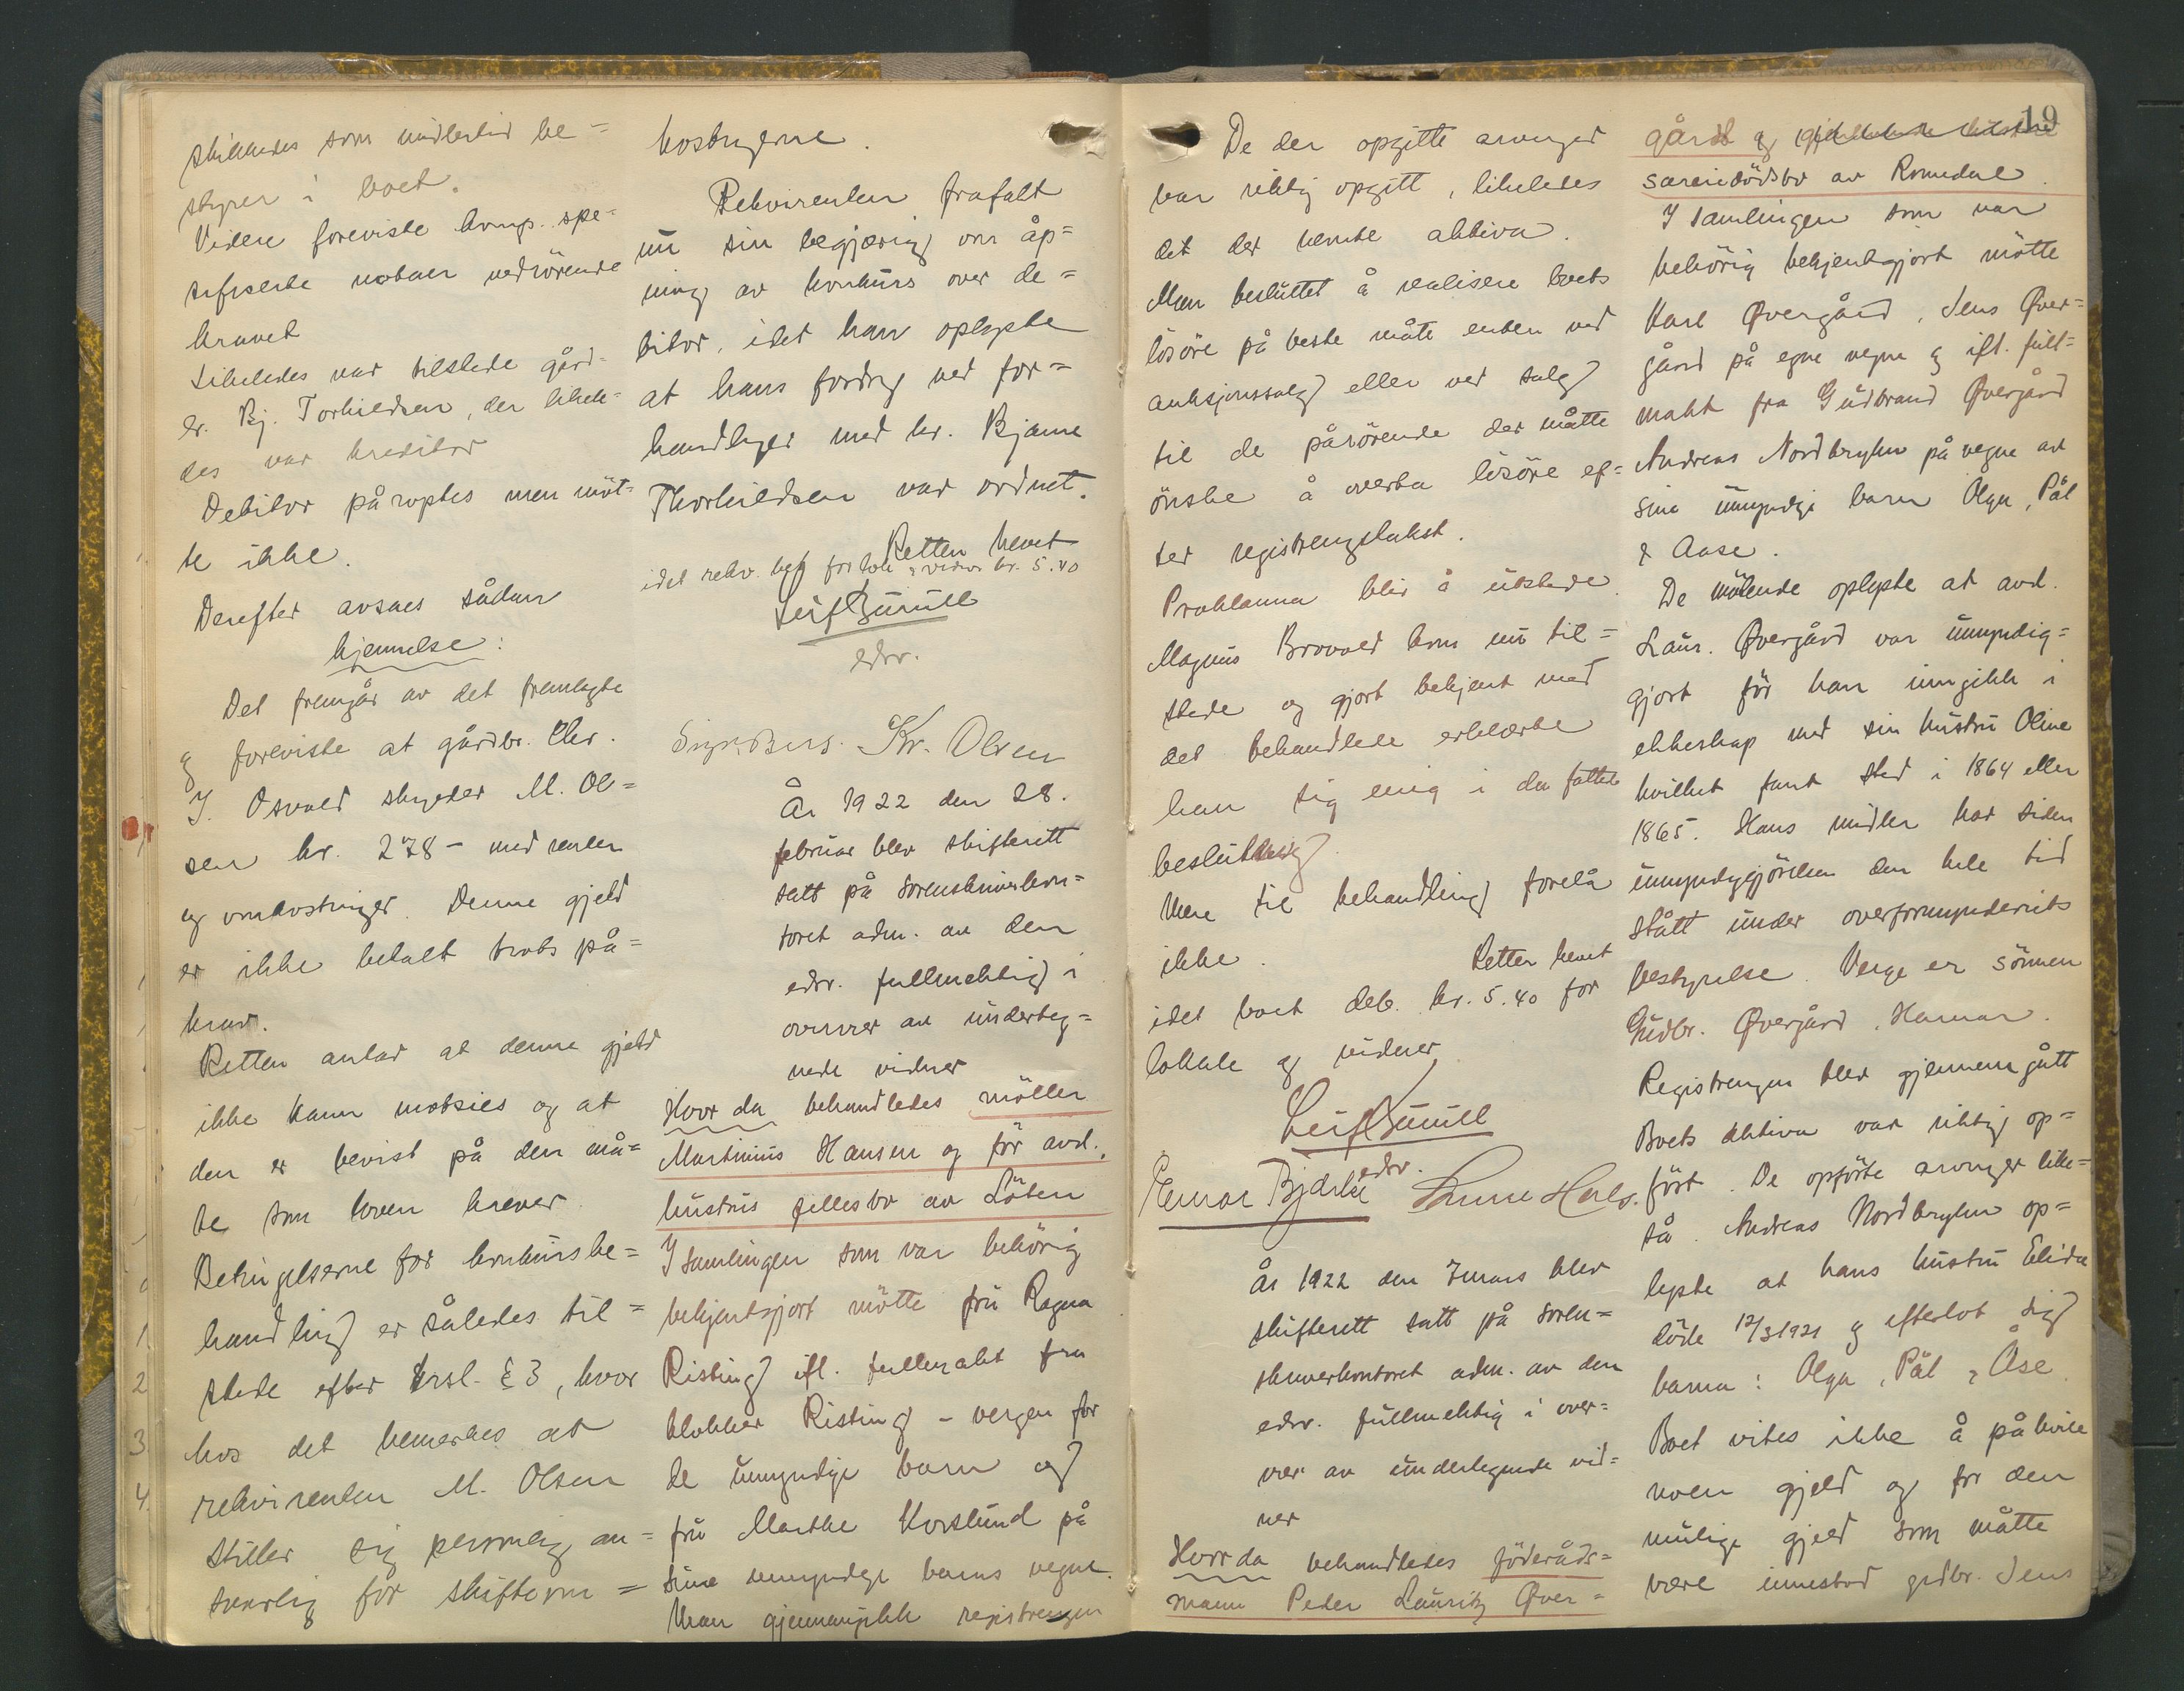 skikkedes som midlertid be=
styrer i boet.
Videre foreviste komp. spe=
sifiserte notaer vedrörende
kravet
Likeledes var tilstede gård=
br. Bj. Torkildsen, der likele=
des var kreditor
Debitor påroptes men möt=
te ikke.
Derefter avsaes sådan
kjennelse:
Det fremgår av det fremlagte
og foreviste at gårdbr. Chr.
J. Osvald skylder M. Ol=
sen kr. 278 - med renter
og omkostninger. Denne gjeld
er ikke betalt trots på=
krav.
Retten antar at denne gjeld
ikke kann motsies og at
den er bevist på den må=
te som loven krever.
Betingelserne for konkursbe=
handling er således til=
stede efter krsl. § 3, hvor
hos det bemerkes at
rekvirenten M. Olsen
stiller sig personlig an=
svarlig for skifteom=
kostngerne.
Rekvirenten frafalt
nu sin begjæring om åp=
ning av konkurs over de=
bitor, idet han oplyste
at hans fordrg ved for=
handlinger med hr. Bjarne
Thorkildsen var ordnet.
Retten hevet
idet rekv. bet for lok & vidner kr. 5.40
Leif
edsv.
Kr. Olsen
År 1922 den 28.
februar blev skifterett
satt på sorenskriverkon=
toret adm. av den
edsv. fullmektig i
overvær av underteg=
nede vidner
Hvor da behandledes möller
Martinius Hansen og før avd.
hustrus fellesbo av Löten
I samlingen som var behörig
bekjentgjort mötte fru Ragna
Risting ifl. fullmakt fra
klokker Risting - vergen for
de umyndige barn og
fru Marthe Korslund på
sine umyndige barns vegne.
Man gjennemgikk registreringen
De der opgitte arvinger
var riktig opgitt, likeledes
det der nevnte aktiva.
Man besluttet å realisere boets
lösöre på beste måte enten ved
auksjonssalg eller ved salg
til de pårörende der måtte
önske å overta lösöre ef=
ter registreringstakst.
Proklama blir å utstede.
Magnus Brovold kom nu til=
stede og gjort bekjent med
det behandlede erklærte
han sig enig i den fattede
beslutning.
Mere til behandling forelå
ikke.
Retten hevet
idet boet deb. kr. 5.40 for
lokale og vidner
Leif
edsv.
År 1922 den 7 mars blev
skifterett satt på soren=
skriverkontoret adm. av den
edsv. fullmektig i over=
vær av undertegnede vid=
ner
Hvor da behandledes föderåds=
mann Peder Lauritz Över=
19
gård og
særeiedödsbo av Romedal.
I samlingen som var
behörig bekjentgjort mötte
Karl Övergård, Jens Över=
gård på egne vegne og ifl. full=
makt fra Gudbrand Övergård
Andreas Nordbryhn på vegne av
sine umyndige barn Olga, Pål
& Aase.
De mötende oplyste at avd.
Laur. Övergård var umyndig=
gjort för han inngikk i
ekteskap med sin hustru Oline
hvilket fant sted i 1864 eller
1865. Hans midler har siden
umyndiggjörelsen den hele tid
stått under overformynderiets
bestyrelse. Verge er sönnen
Gudbr. Övergård, Hamar.
Registreringen blev gjennemgått
Boets aktiva var riktig op=
fört. De opförte arvinger like=
så. Andreas Nordbryhn op=
lyste at hans hustru Elida
döde 12/3 1921 og efterlot sig
barna: Olga, Pål & Åse.
Boet vites ikke å påhvile
noen gjeld og for den
mulige gjeld som måtte
være innestod grdbr. Jens